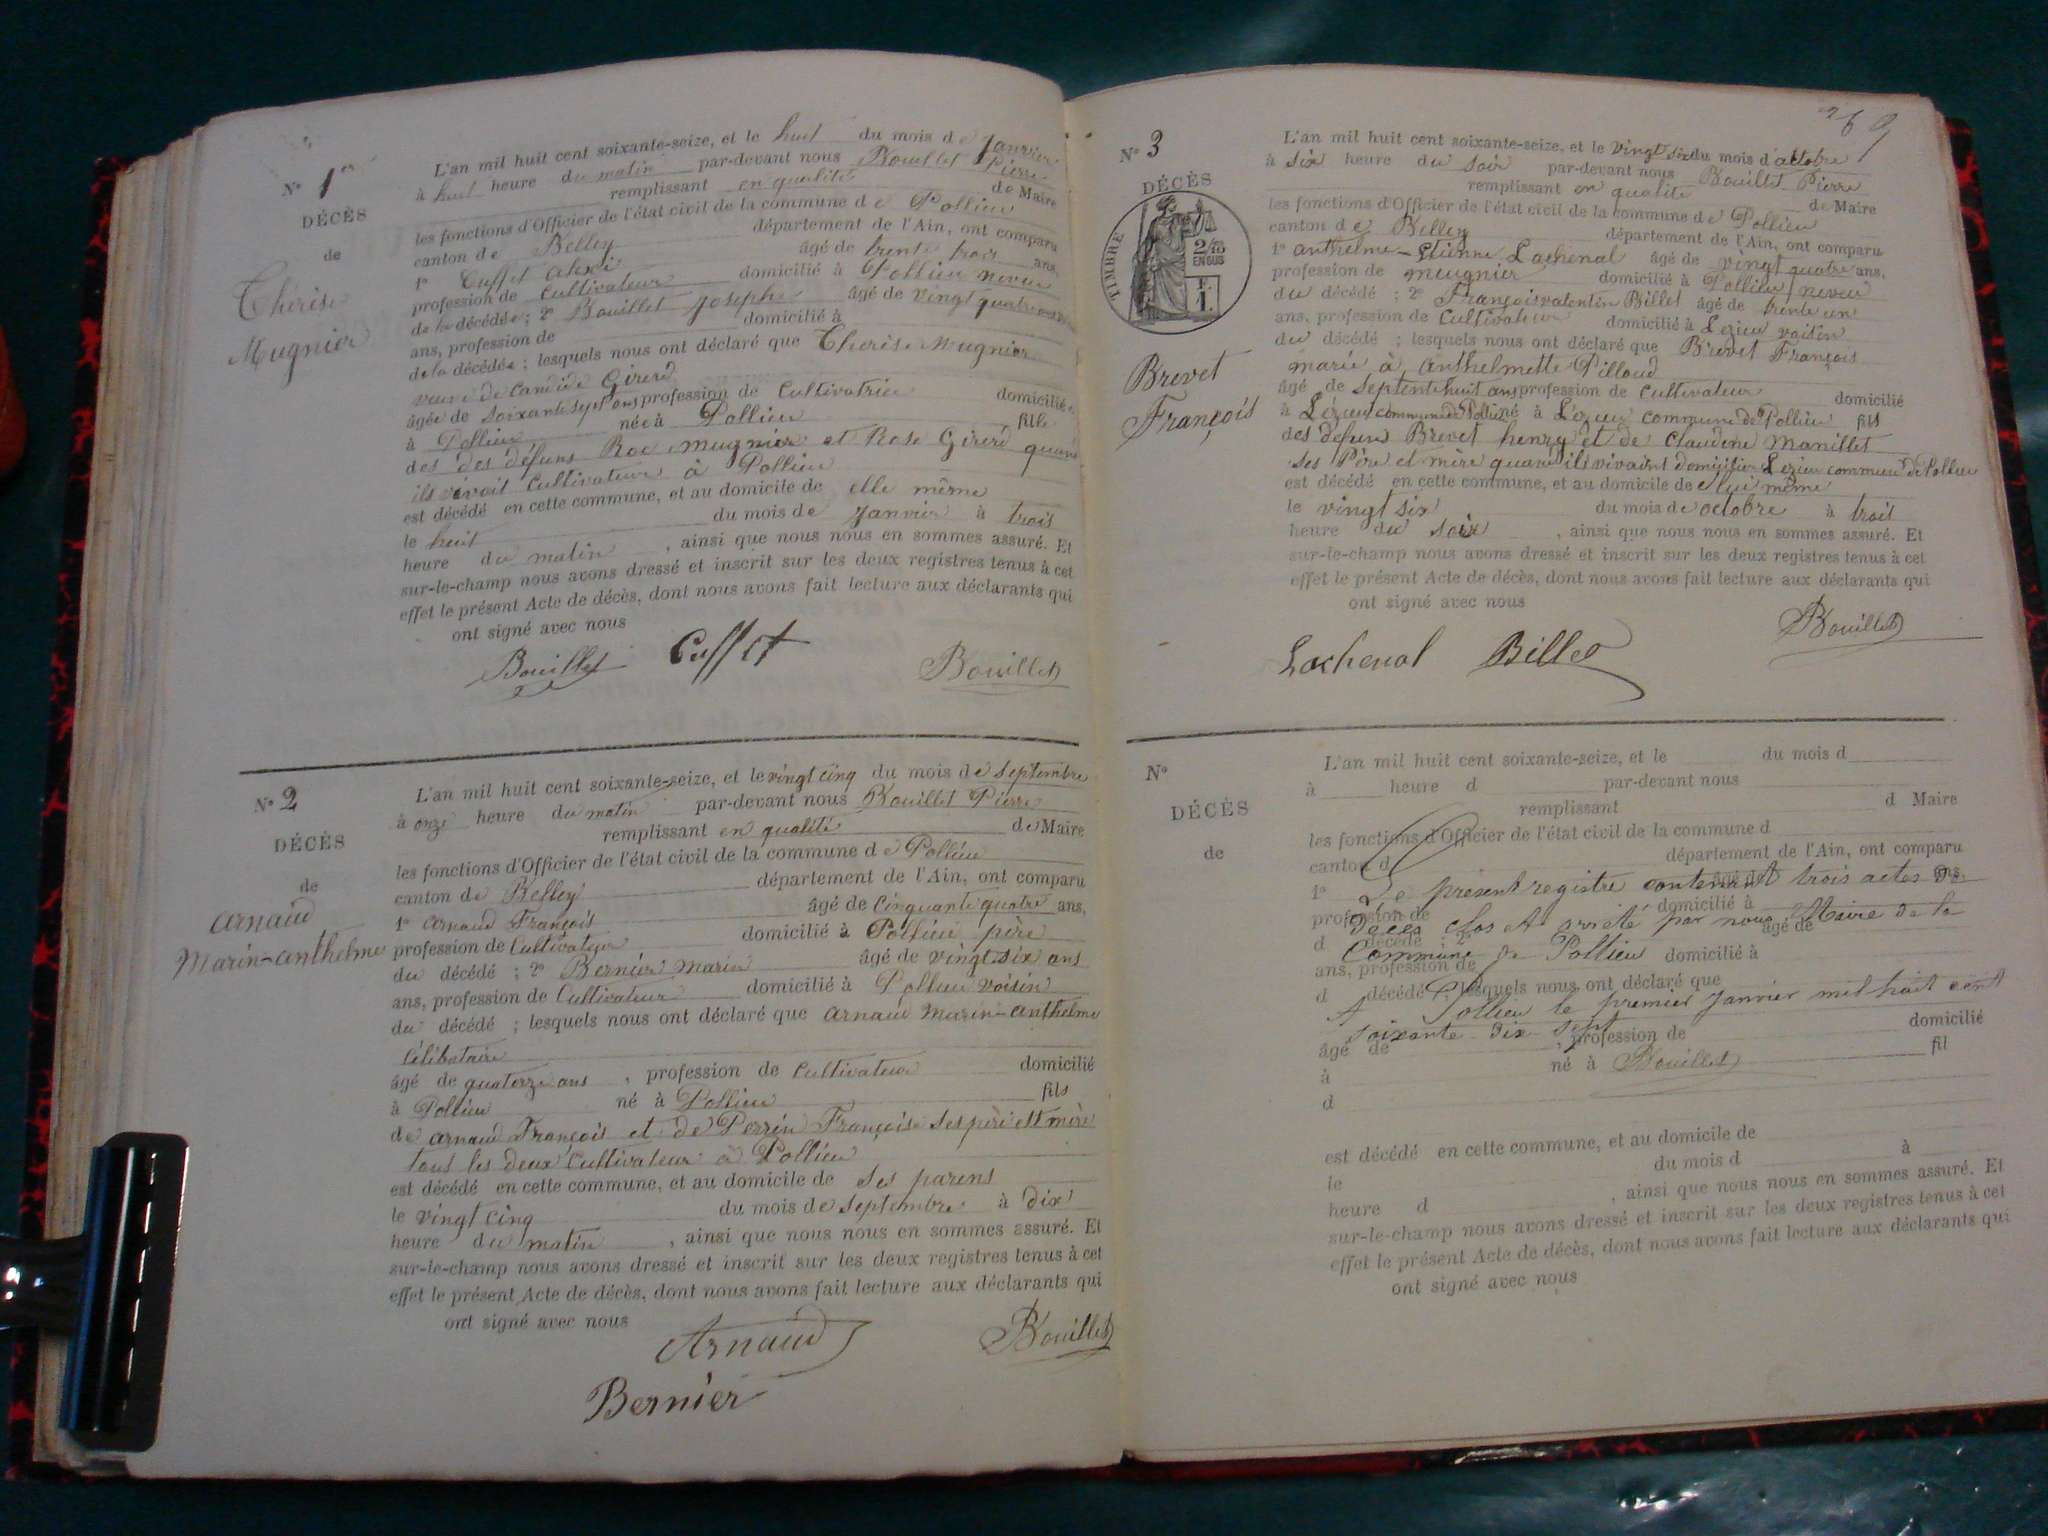 N° 1er
DÉCÈS
de
Thérèse
Mugnier
L'an mil huit cent soixante-seize, et le huit du mois de Janvier
à huit heure du matin par-devant nous Bouillet Pierre
remplissant en qualité de Maire
les fonctions d'Officier de l'état civil de la commune de Pollieu
canton de Belley département de l'Ain, ont comparu
1° Cusset alexi âgé de trente trois ans,
profession de Cultivateur domicilié à Pollieu neveu
de la décédée ; 2° Bouillet Joseph âgé de vingt quatre
ans, profession de domicilié à
de la décédée ; lesquels nous ont déclaré que Thérèse Mugnier
veuve de Candide Girerd
âgée de soixante sept ans profession de Cultivatrice domicilié
à Pollieu née à Pollieu fille
des des défuns Roc Mugnier et Rose Girerd quand
ils vivoit Cultivateur à Pollieu
est décédé en cette commune, et au domicile de elle même
le huit du mois de Janvier à trois
heure du matin , ainsi que nous nous en sommes assuré. Et
sur-le-champ nous avons dressé et inscrit sur les deux registres tenus à cet
effet le présent Acte de décès, dont nous avons fait lecture aux déclarants qui
ont signé avec nous
Bouillet Cusset Bouillet
N° 2
DÉCÈS
de
Arnaud
Marin-anthelme
L'an mil huit cent soixante-seize, et le vingt cinq du mois de Septembre
à onze heure du matin par-devant nous Bouillet Pierre
remplissant en qualité de Maire
les fonctions d'Officier de l'état civil de la commune de Pollieu
canton de Belley département de l'Ain, ont comparu
1° Arnaud François âgé de Cinquante quatre ans,
profession de Cultivateur domicilié à Pollieu père
du décédé ; 2° Bernier Marin âgé de vingt six ans
ans, profession de Cultivateur domicilié à Pollieu voisin
du décédé ; lesquels nous ont déclaré que Arnaud Marin-anthelme
Célibataire
âgé de quatorze ans , profession de Cultivateur domicilié
à Pollieu né à Pollieu fils
de Arnaud François et de Perrin Françoise ses père et mère
tous les deux Cultivateur à Pollieu
est décédé en cette commune, et au domicile de ses parens
le vingt cinq du mois de Septembre à dix
heure du matin , ainsi que nous nous en sommes assuré. Et
sur-le-champ nous avons dressé et inscrit sur les deux registres tenus à cet
effet le présent Acte de décès, dont nous avons fait lecture aux déclarants qui
ont signé avec nous
Arnaud Bouillet
Bernier
269
N° 3
DÉCÈS
TIMBRE
2/10
EN SUS
F.
1.
Brevet
François
L'an mil huit cent soixante-seize, et le vingt six du mois d'octobre
à six heure du soir par-devant nous Bouillet Pierre
remplissant en qualité de Maire
les fonctions d'Officier de l'état civil de la commune de Pollieu
canton de Belley département de l'Ain, ont comparu
1° anthelme-Etienne Lachenal âgé de vingt quatre ans,
profession de meugnier domicilié à Pollieu neveu
du décédé ; 2° François valentin Billet âgé de trente un
ans, profession de Cultivateur domicilié à Lezieu voisin
du décédé ; lesquels nous ont déclaré que Brevet François
marié à Anthelmette Pilloud
âgé de septente huit ans profession de Cultivateur domicilié
à Lézieu commune de Pollieu né à Lézieu commune de Pollieu fils
des défuns Brevet henry et de Claudine Manillet
ses Père et mère quand ils vivaint domicilier Lezieu commune de Pollieu
est décédé en cette commune, et au domicile de lui même
le vingt six du mois de octobre à trois
heure du soir , ainsi que nous nous en sommes assuré. Et
sur-le-champ nous avons dressé et inscrit sur les deux registres tenus à cet
effet le présent Acte de décès, dont nous avons fait lecture aux déclarants qui
ont signé avec nous
Lachenal Billet Bouillet
N°
DÉCÈS
de
L'an mil huit cent soixante-seize, et le du mois d
à heure d par-devant nous
remplissant d Maire
les fonctions d'Officier de l'état civil de la commune d
canton d département de l'Ain, ont comparu
1° âgé de ans,
Le présent registre contenant trois actes de
profession de domicilié à
Décès clos et arrêté par nous Maire de la
d décédé ; 2° âgé de
Commune de Pollieu
ans, profession de domicilié à
d décédé ; lesquels nous ont déclaré que
A Pollieu le premier Janvier mil huit cent
soixante dix sept
âgé de , profession de domicilié
à né à fil
Bouillet
d
est décédé en cette commune, et au domicile de
le du mois d à
heure d , ainsi que nous nous en sommes assuré. Et
sur-le-champ nous avons dressé et inscrit sur les deux registres tenus à cet
effet le présent Acte de décès, dont nous avons fait lecture aux déclarants qui
ont signé avec nous